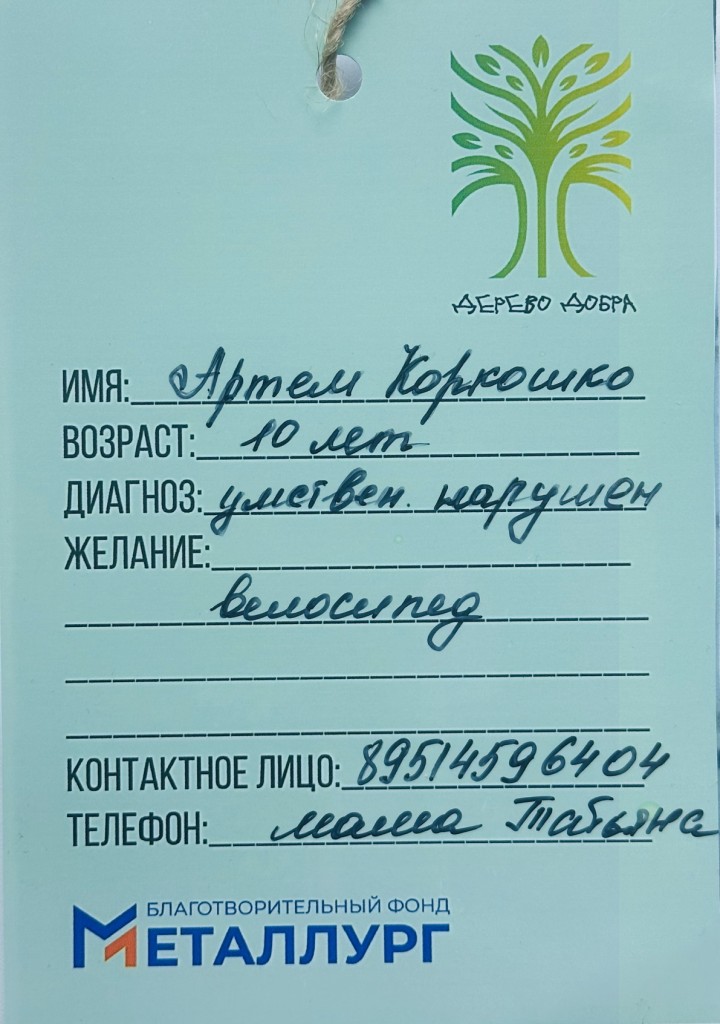 ДЕРЕВО ДОБРА
ИМЯ: Артем Коркошко
ВОЗРАСТ: 10 лет
ДИАГНОЗ: умствен. нарушен
ЖЕЛАНИЕ:
велосипед
КОНТАКТНОЕ ЛИЦО: 89514596404
ТЕЛЕФОН: мама Татьяна
БЛАГОТВОРИТЕЛЬНЫЙ ФОНД
МЕТАЛЛУРГ